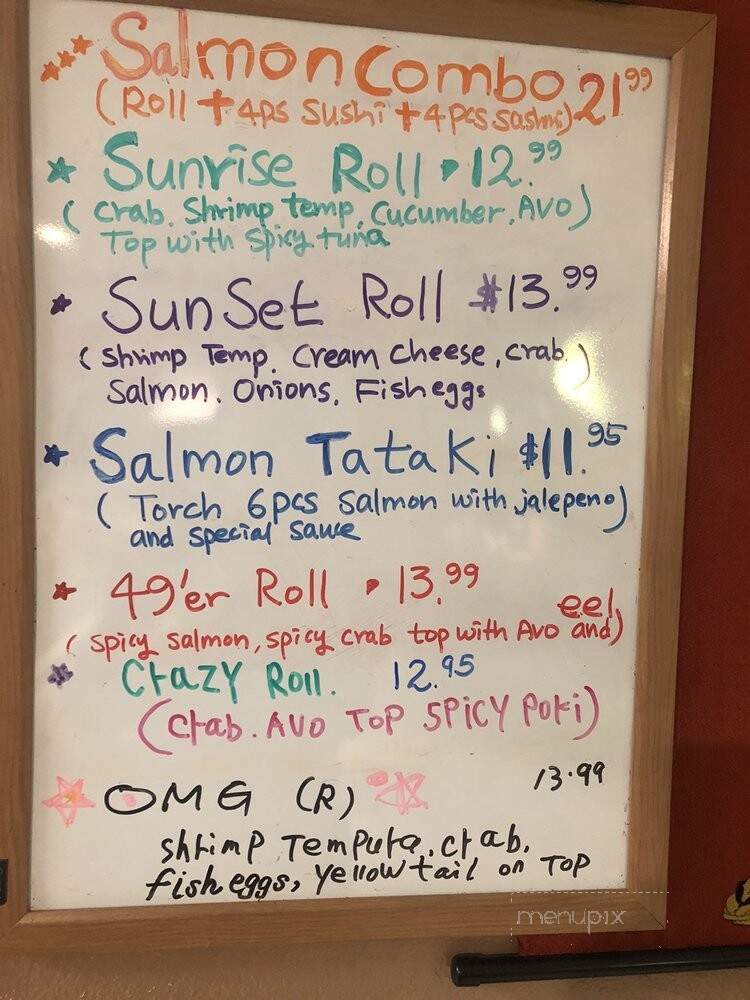 Salmon Combo 21.99
(Roll + 4ps sushi + 4pcs sashmi)
Sunrise Roll 12.99
(crab. Shrimp temp, Cucumber, Avo)
Top with spicy tuna
SunSet Roll $13.99
(shrimp Temp, Cream cheese, crab,)
Salmon, Onions, Fish eggs
Salmon Tataki $11.95
(Torch 6pcs Salmon with jalepeno)
and special sauce
49'er Roll 13.99
(spicy salmon, spicy crab top with Avo and) eel
Crazy Roll. 12.95
(Crab. AVO TOP SPICY Poki)
OMG (R) 13.99
shrimp Tempura, crab,
fish eggs, Yellow tail on TOP
menupix